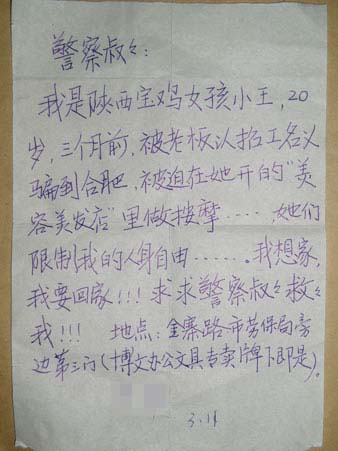 警察叔々：
我是陕西宝鸡女孩小王，20
岁，三个月前，被老板以招工名义
骗到合肥，被迫在她开的"美
容美发店"里做按摩……她们
限制我的人身自由……。我想家，
我要回家!!!求求警察叔々救々
我!!!地点：金寨路市劳保局旁
边第三门(博文办公文具专卖牌下即是)。
3.18